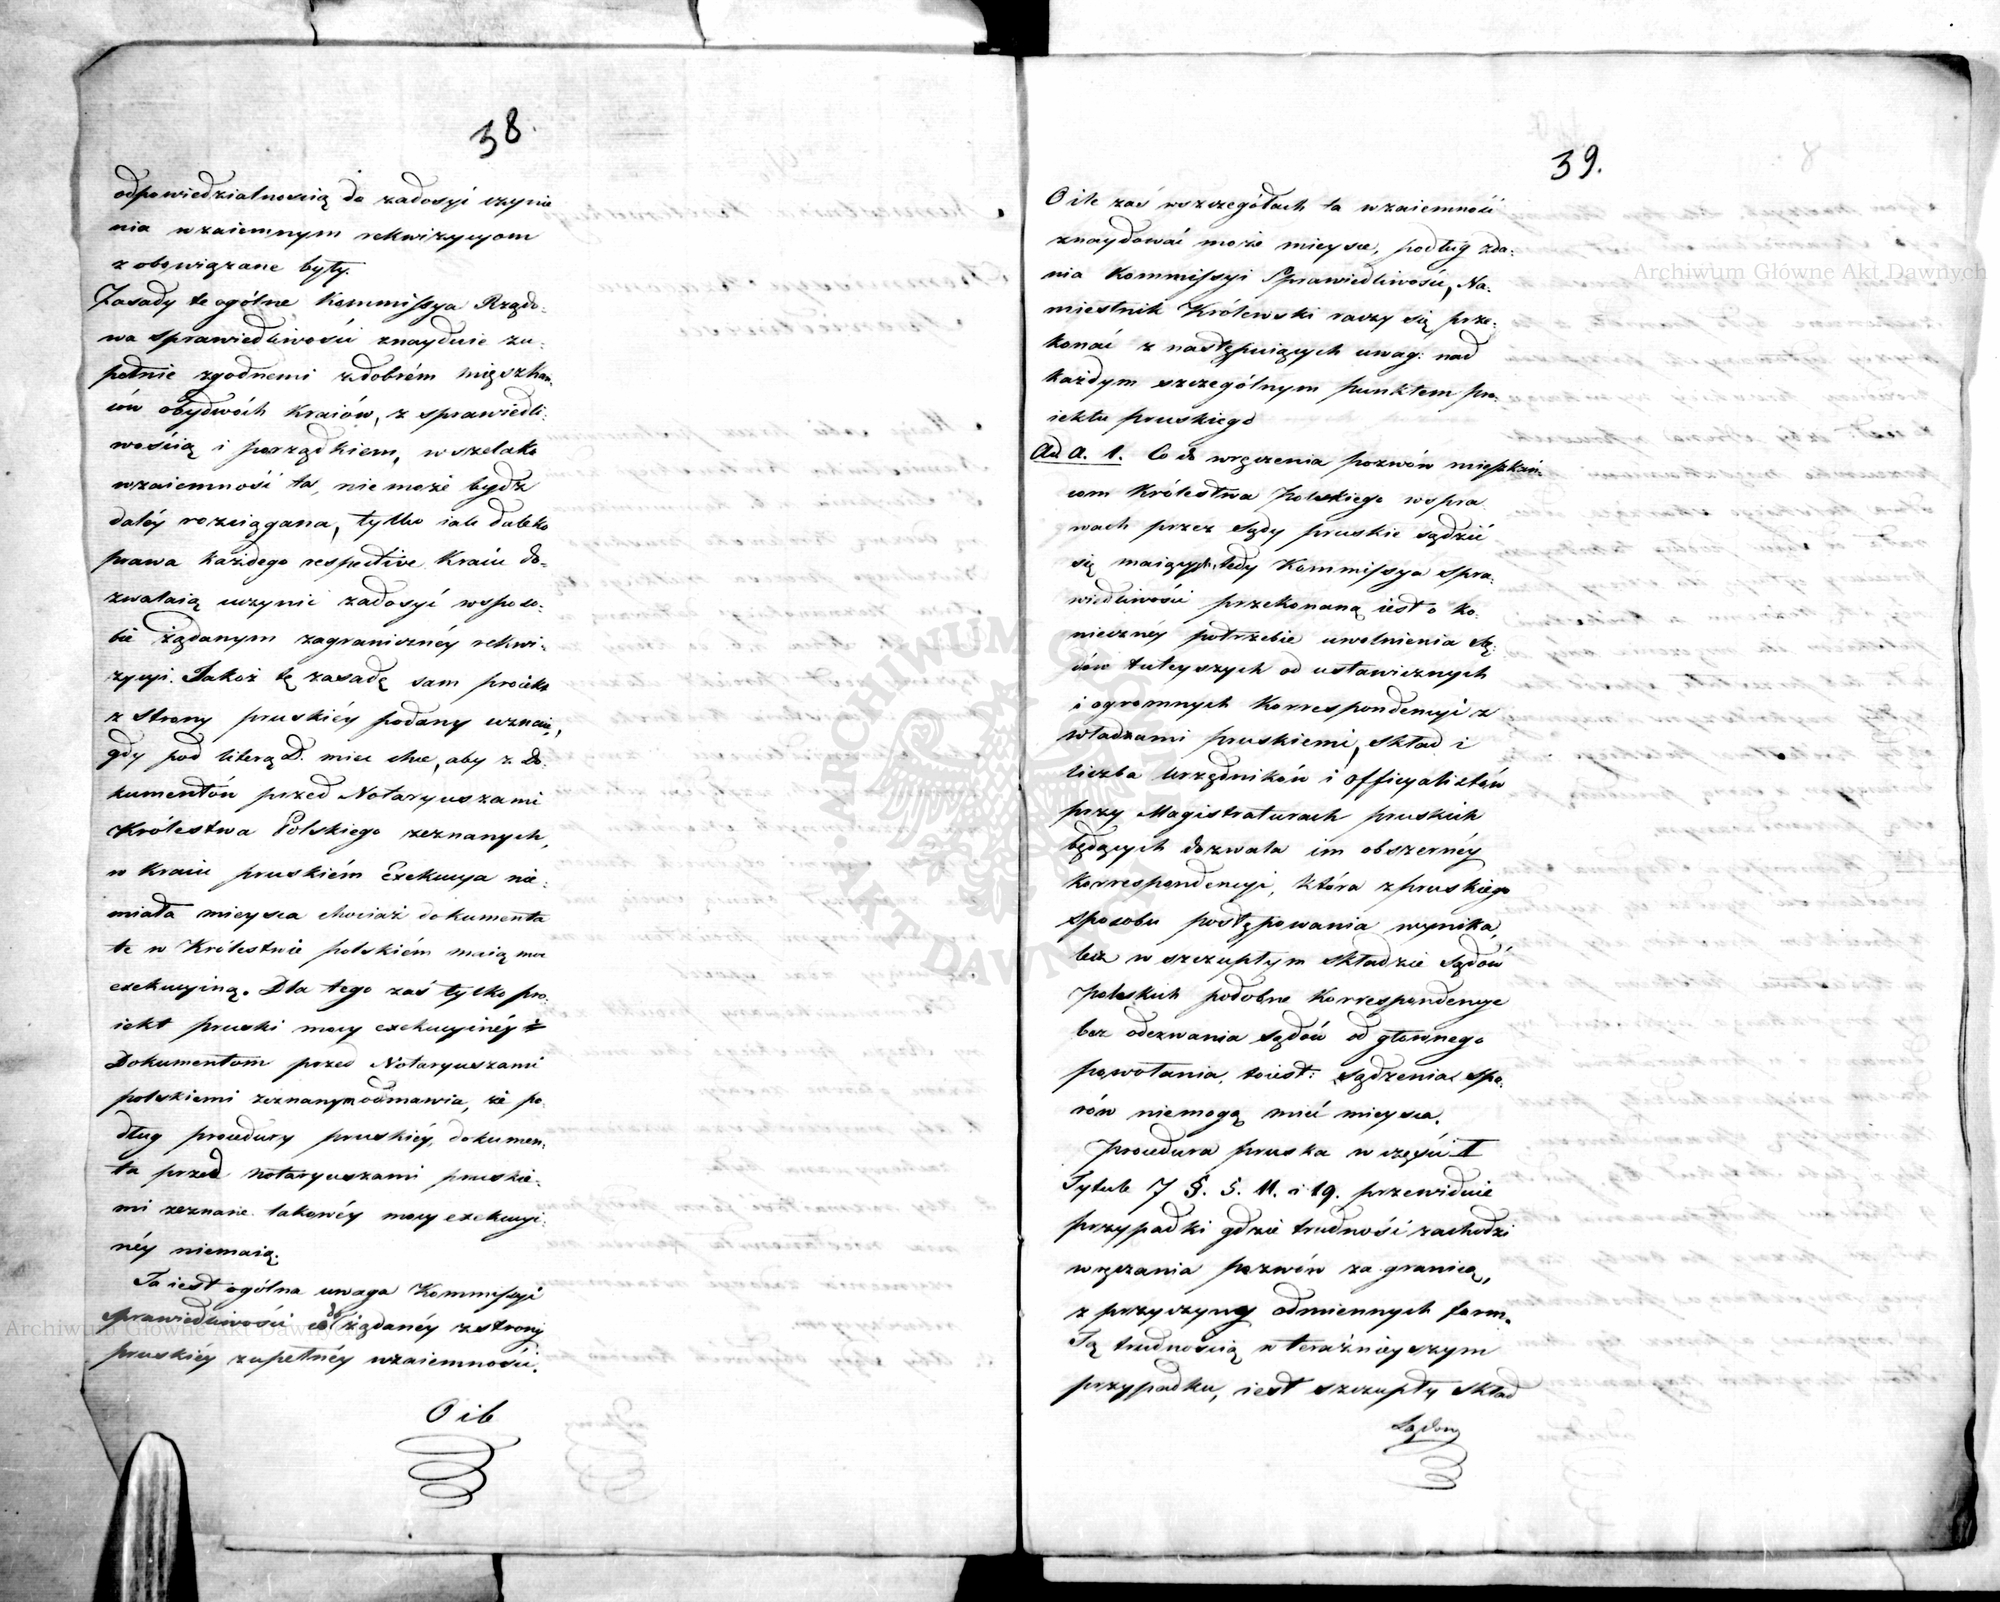 38.
odpowiedzialnoscią do zadosyć czynie
nia wzaiemnym rekwizycyom
zobowiązane były.
Zasady te ogólne Kommissya Rządo-
wa sprawiedliwości znayduie zu-
pełnie zgodnemi z dobrém mięszkań-
ców obydwóch Kraiów, z sprawiedli-
wością i porządkiem, wszelako
wzaiemność ta, nie może bydź
daléy rozciągana, tylko iak daleko
prawa każdego respective Kraiu do-
zwalaią uczynić zadosyć wsposo-
bie żądanym zagranicznéy rekwi-
zycyi. Jakoż tę zasadę sam proiekt
z strony pruskiéy podany uznaie,
gdy pod literą D. mieć chce, aby z Do-
kumentów przed Notaryuszami
Królestwa Polskiego zeznanych,
w Kraiu pruskiém Exekucya nie-
miała mieysca chociaż dokumenta
te w Królestwie polskiém maią moc
exekucyiną. Dla tego zaś tylko pro-
iekt pruski mocy exekucyinéy
Dokumentom przed Notaryuszami
polskiemi zeznanym odmawia, że po-
dług procedury pruskiéy, dokumen-
ta przed notaryuszami pruskie-
mi zeznane takowéy mocy exekucyi-
néy niemaią.
Ta iest ogólna uwaga Kommissyi
sprawiedliwości co do żądanéy zstrony
pruskiéy zupełnéy wzaiemności.
O ile
39.
O ile zaś wszczegółach ta wzaiemność
znaydować może mieysce, podług zda-
nia Kommissyi Sprawiedliwości, Na-
miestnik Królewski raczy się prze-
konać z następuiących uwag: nad
każdym szczególnym punktem pro-
iektu pruskiego
Ad A. 1. Co do wręczenia pozwów mieszkań-
com Królestwa Polskiego wspra-
wach przez sądy pruskie sądzić
się maiących, tedy Kommissya spra-
wiedliwości przekonaną iest o ko-
nieczney potrzebie uwolnienia są-
dów tuteyszych od ustawicznych
i ogromnych Korrespondencyi z
władzami pruskiemi, skład i
liczba Urzędników i Officyalistów
przy Magistraturach pruskich
będących dozwala im obszernéy
Korrespondencyi, która z pruskiego
sposobu postępowania wynika,
lecz w szczupłym składzie sądów
polskich podobne Korrespondencye
bez oderwania sądów od głownego
powołania, toiest: sądzenia spo-
rów niemogą mieć mieysca.
Procedura pruska w części I
Tytule 7 §. 5. 11. i 19. przewiduie
przypadki gdzie trudność zachodzi
wręczania pozwów za granicą,
z przyczyny odmiennych form.
Tą trudnością w teraźnieyszym
przypadku, iest szczupły skład
Sądów
Archiwum Główne Akt Dawnych
Archiwum Główne Akt Dawnych